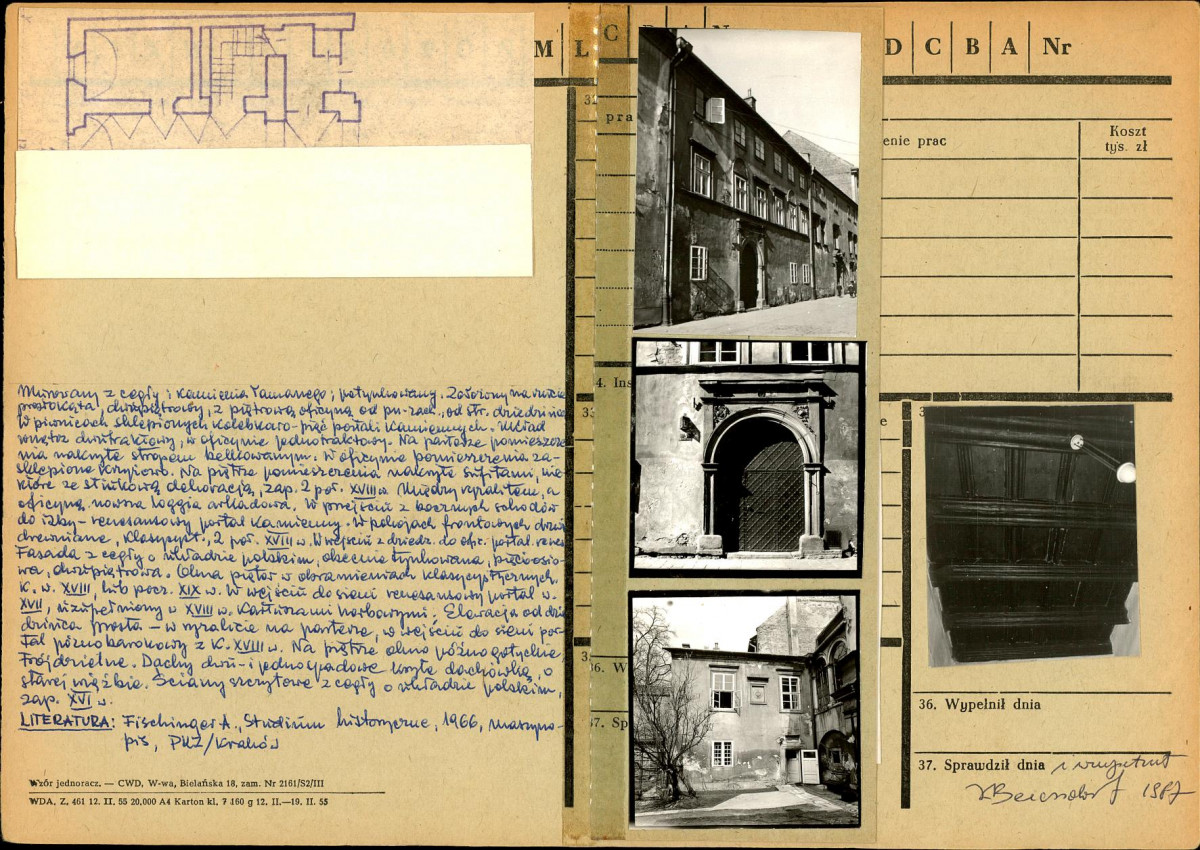 M L
C D A N
D C B A Nr
pra
enie prac
Koszt
tys. zł
4. Ins
e
Murowany z cegły i kamienia łamanego, potynkowany. Założony na rzucie
prostokąta, dwupiętrowy, z piętrową oficyną od pn-zach, od str. dziedzińca
W piwnicach sklepionych kolebkowo - pięć portali kamiennych. Układ
wnętrz dwutraktowy, w oficynie jednotraktowy. Na parterze pomieszcze-
nia nakryte stropem belkowanym. W oficynie pomieszczenia za-
sklepione krzyżowo. Na piętrze pomieszczenia nakryte sufitami, nie-
które ze stiukową dekoracją, zap. 2 poł. XVIII w. Między ryzalitem, a
oficyną, nowsza loggia arkadowa. W przejściu z bocznych schodów
do izby - renesansowy portal kamienny. W pokojach frontowych drzwi
drewniane, klasycyst., 2 poł. XVIII w. W wejściu z dziedz. do ofic. portal renes
Fasada z cegły o układzie polskim, obecnie tynkowana, pięcioosio-
wa, dwupiętrowa. Okna pięter w obramieniach klasycystycznych
k. w. XVIII, lub pocz. XIX w. W wejściu do sieni renesansowy portal w.
XVII, uzupełniony w XVIII w. kartuszami herbowymi. Elewacja od dzie
dzińca prosta - w ryzalicie na parterze, w wejściu do sieni por-
tal późnobarokowy z k. XVIII w. Na piętrze okno późnogotyckie
trójdzielne. Dachy dwu- i jednospadowe kryte dachówką, o
starej więźbie. Ściany szczytowe z cegły o układzie polskim,
zap. XVI w.
LITERATURA: Fischinger A., Studium historyczne, 1966, maszyno-
pis, PKZ/Kraków
Wzór jednoracz. — CWD, W-wa, Bielańska 18, zam. Nr 2161/S2/III
WDA, Z. 461 12. II. 55 20,000 A4 Karton kl. 7 160 g 12. II.—19. II. 55
6. W
37. Sp
36. Wypełnił dnia
37. Sprawdził dnia
1987